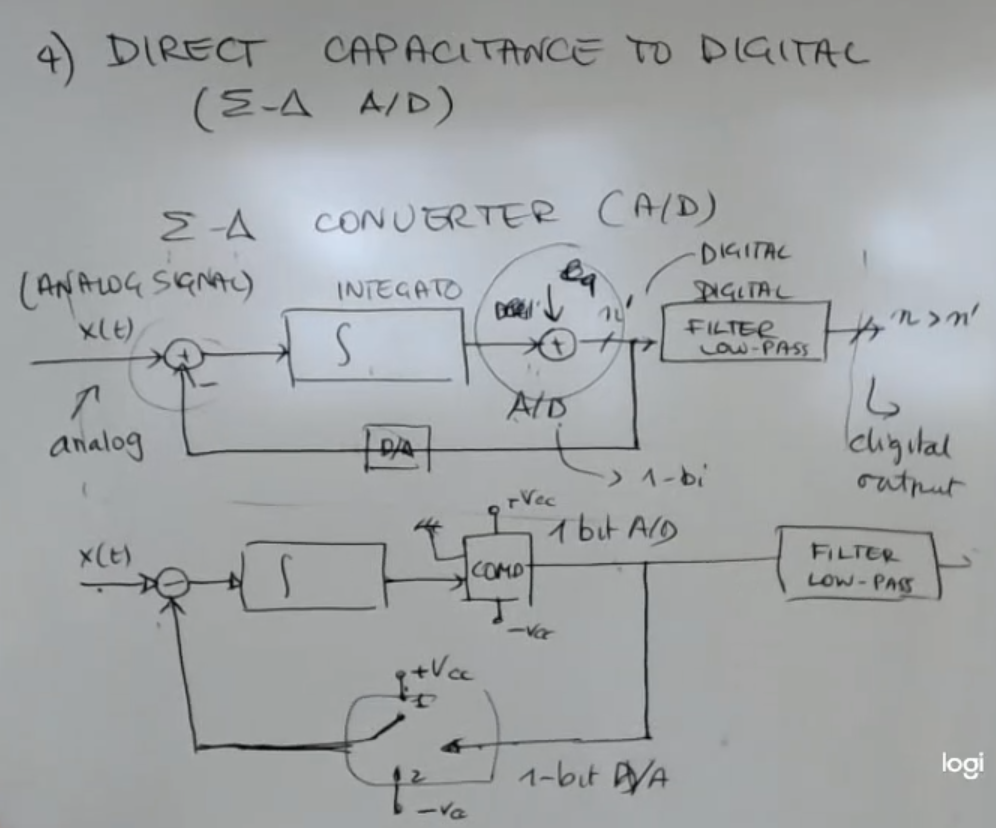 4) DIRECT CAPACITANCE TO DIGITAL
(Σ-Δ A/D)
Σ-Δ CONVERTER (A/D)
(ANALOG SIGNAL)
x(t)
analog
INTEGATO
∫
n'
DIGITAL
DIGITAL
FILTER
LOW-PASS
n > n'
digital
output
A/D
1-bi
D/A
x(t)
∫
+Vcc
COMP
-Vcc
1 bit A/D
FILTER
LOW-PASS
+Vcc
1
2
-Vcc
1-bit D/A
logi